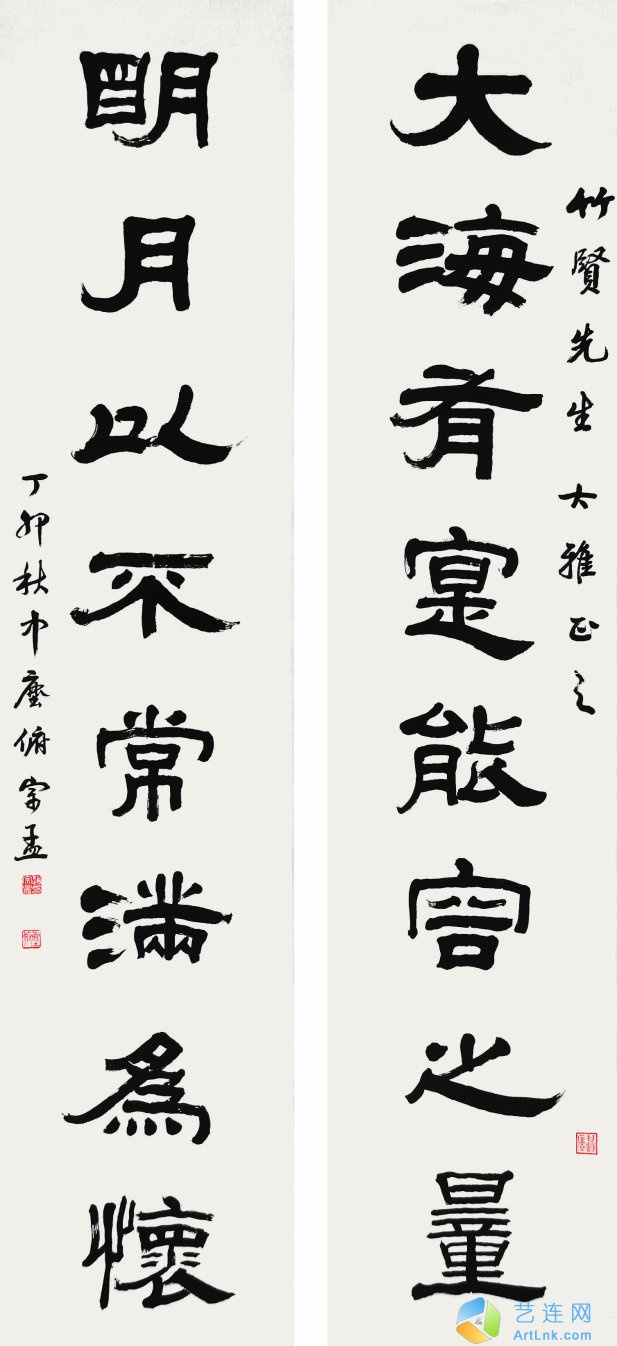 竹賢先生 大雅正之
大海有寔能容之量
明月以不常滿爲懷
丁卯秋中 宗孟
艺连网
ArtLnk.com